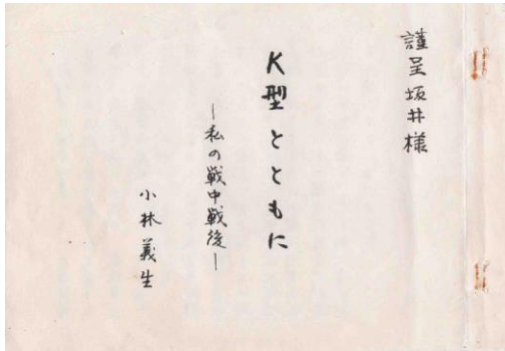 謹呈坂井様
K型とともに
―私の戦中戦後―
小林義生